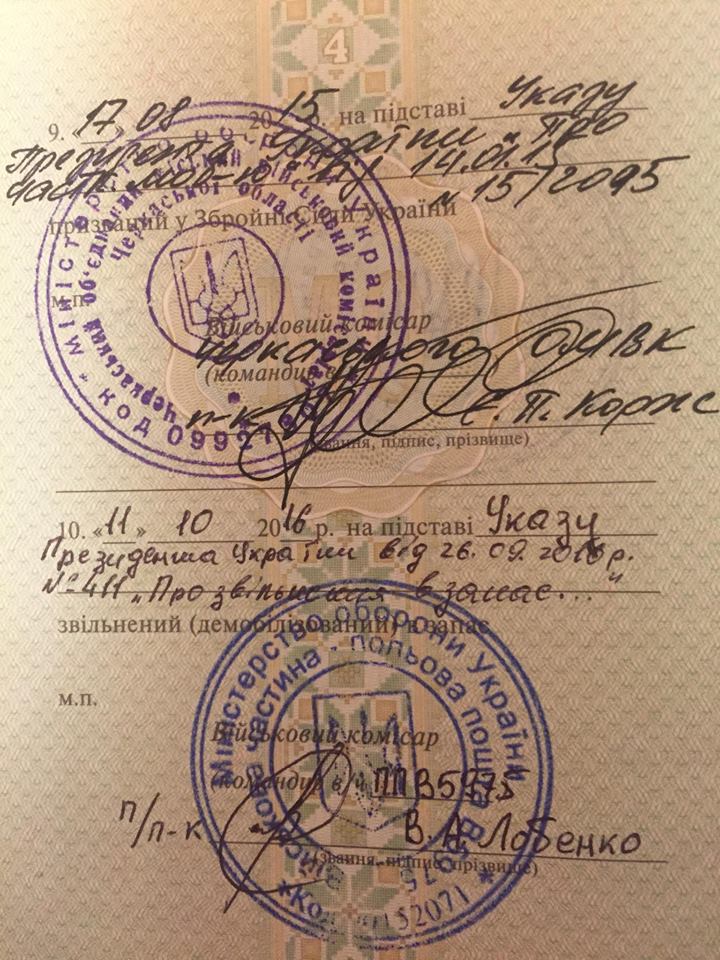 4
9. «17» 08 2015 р. на підставі Указу
Президента України „Про
част. моб-ю" від 14.01.15
№ 15/2015
призваний у Збройні Сили України
м.п.
Військовий комісар
Черкаського ОМВК
(командир в/ч
п-к Є. П. Корж
(звання, підпис, прізвище)
Міністерство оборони України
Черкаський об'єднаний міський військовий комісаріат
Черкаської області
* код
10. «11» 10 2016 р. на підставі Указу
Президента України від 26.09.2016 р.
№ 411 „Про звільнення в запас..."
звільнений (демобілізований) в запас
м.п.
Військовий комісар
(командир в/ч ПП В5975
п/п-к В. А. Лобенко
(звання, підпис, прізвище)
Міністерство оборони України
Військова частина - польова пошта В5975
* Код